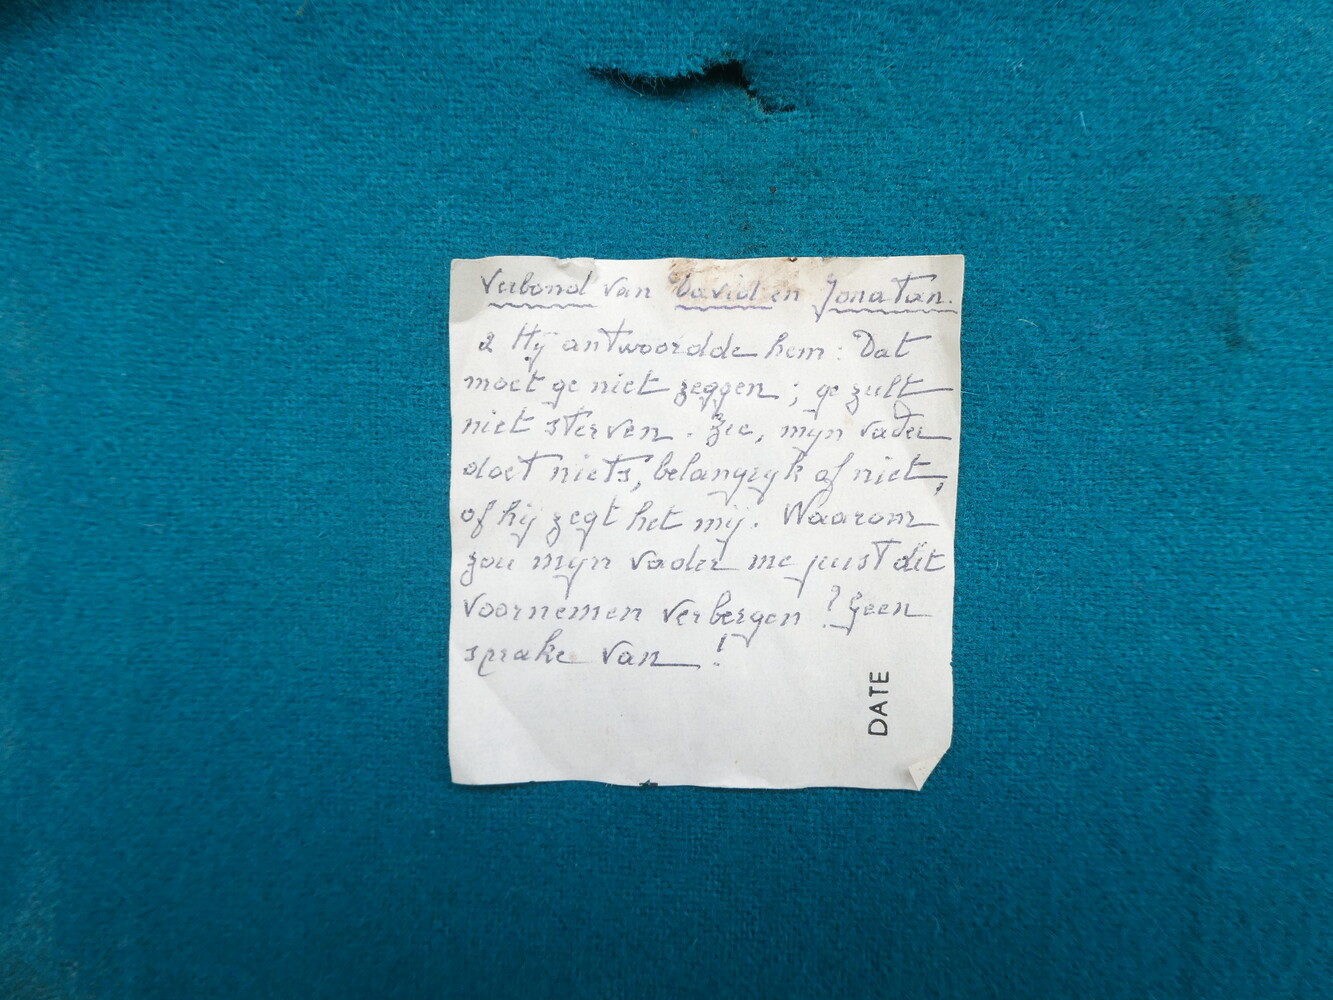 Verbond van David en Jonatan.
2 Hij antwoordde hem: Dat
moet ge niet zeggen; ge zult
niet sterven. Zie, mijn vader
doet niets, belangrijk of niet,
of hij zegt het mij. Waarom
zou mijn vader me juist dit
voornemen verbergen? Geen
sprake van!
DATE